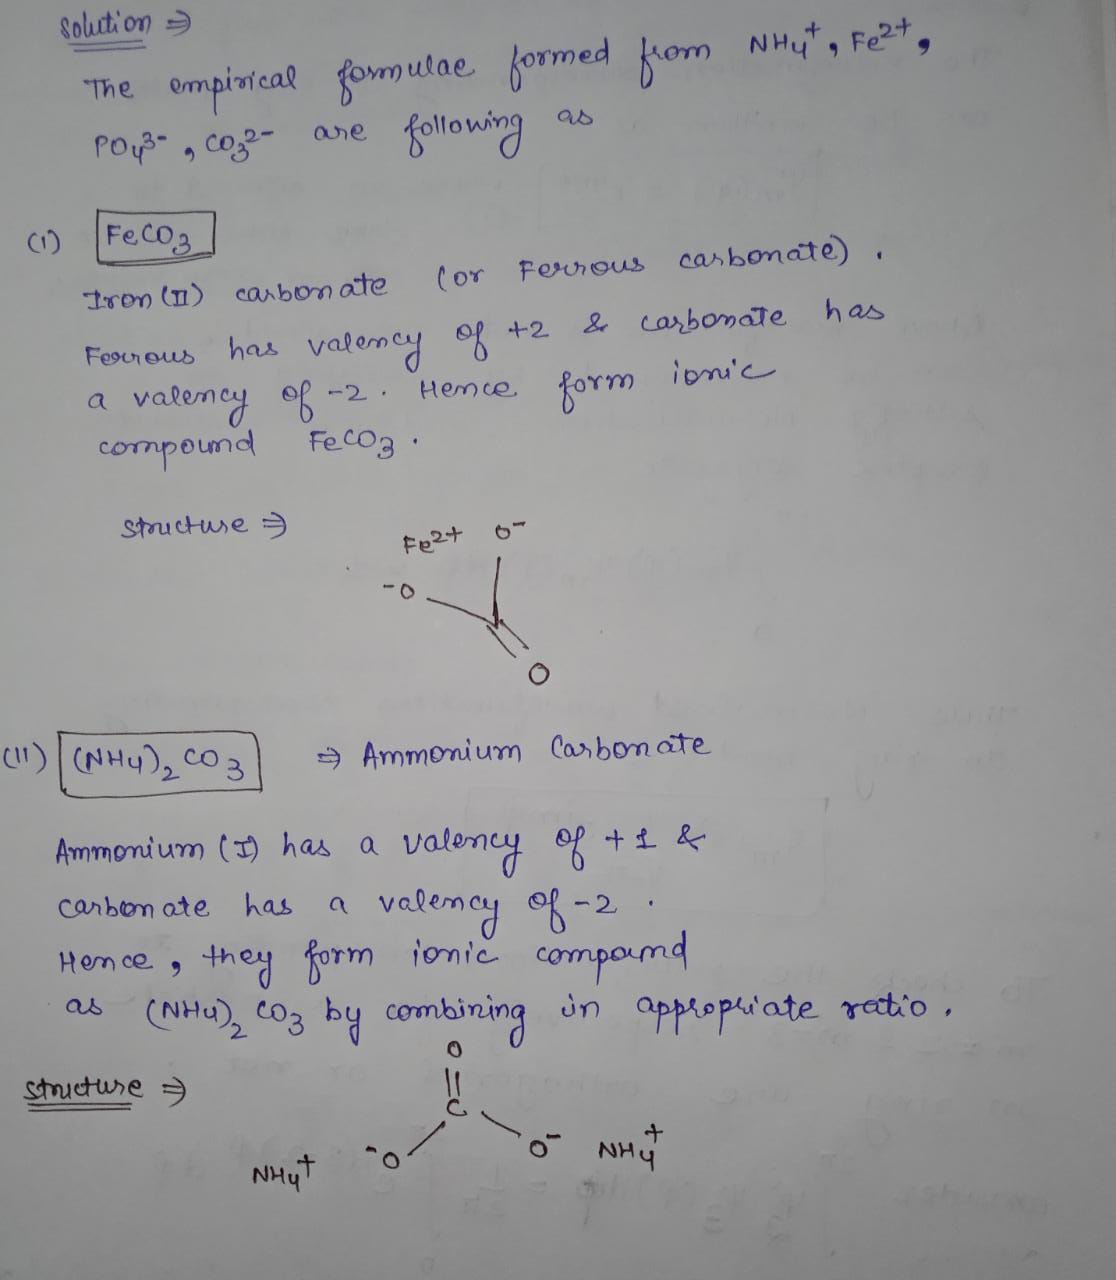 solution ⇒
The empirical formulae formed from NH4+, Fe2+,
PO43-, CO32- are following as
(1) FeCO3
Iron (II) carbonate (or Ferrous carbonate).
Ferrous has valency of +2 & carbonate has
a valency of -2. Hence form ionic
compound FeCO3.
structure ⇒
Fe2+ O-
-O
O
(11) (NH4)2 CO3 ⇒ Ammonium Carbonate
Ammonium (I) has a valency of +1 &
carbonate has a valency of -2.
Hence, they form ionic compound
as (NH4)2 CO3 by combining in appropriate ratio.
O
structure ⇒
C
NH4+ -O O- NH4+